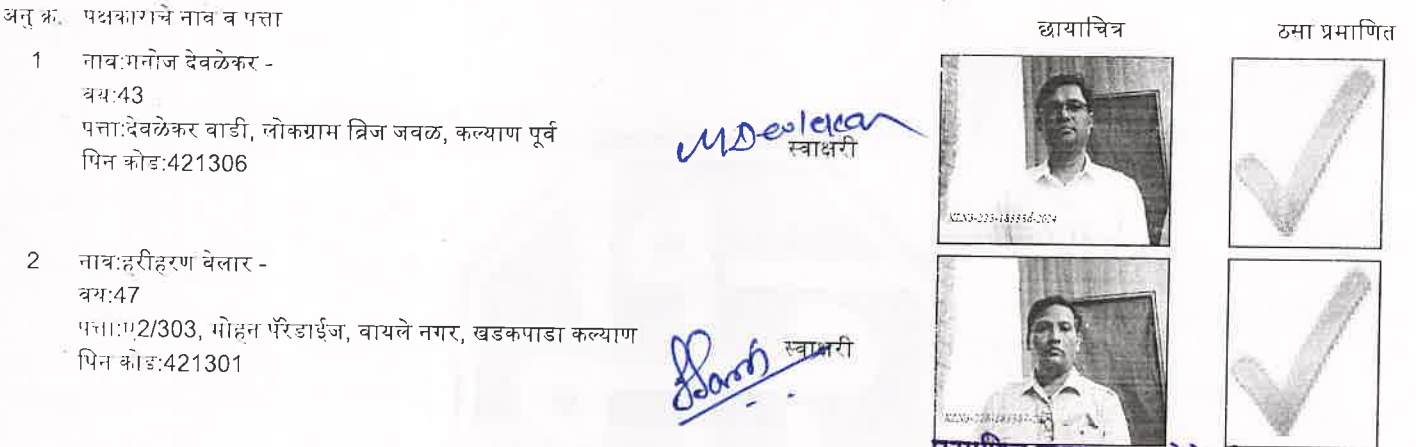 अनु क्र. पक्षकाराचे नाव व पत्ता
छायाचित्र
ठसा प्रमाणित
1 नाव:मनोज देवळेकर -
वय:43
पत्ता:देवळेकर वाडी, लोकग्राम ब्रिज जवळ, कल्याण पूर्व
पिन कोड:421306
MDevlekar
स्वाक्षरी
2 नाव:हरीहरण वेलार -
वय:47
पत्ता:ए2/303, मोहन पॅरेडाईज, वायले नगर, खडकपाडा कल्याण
पिन कोड:421301
स्वाक्षरी